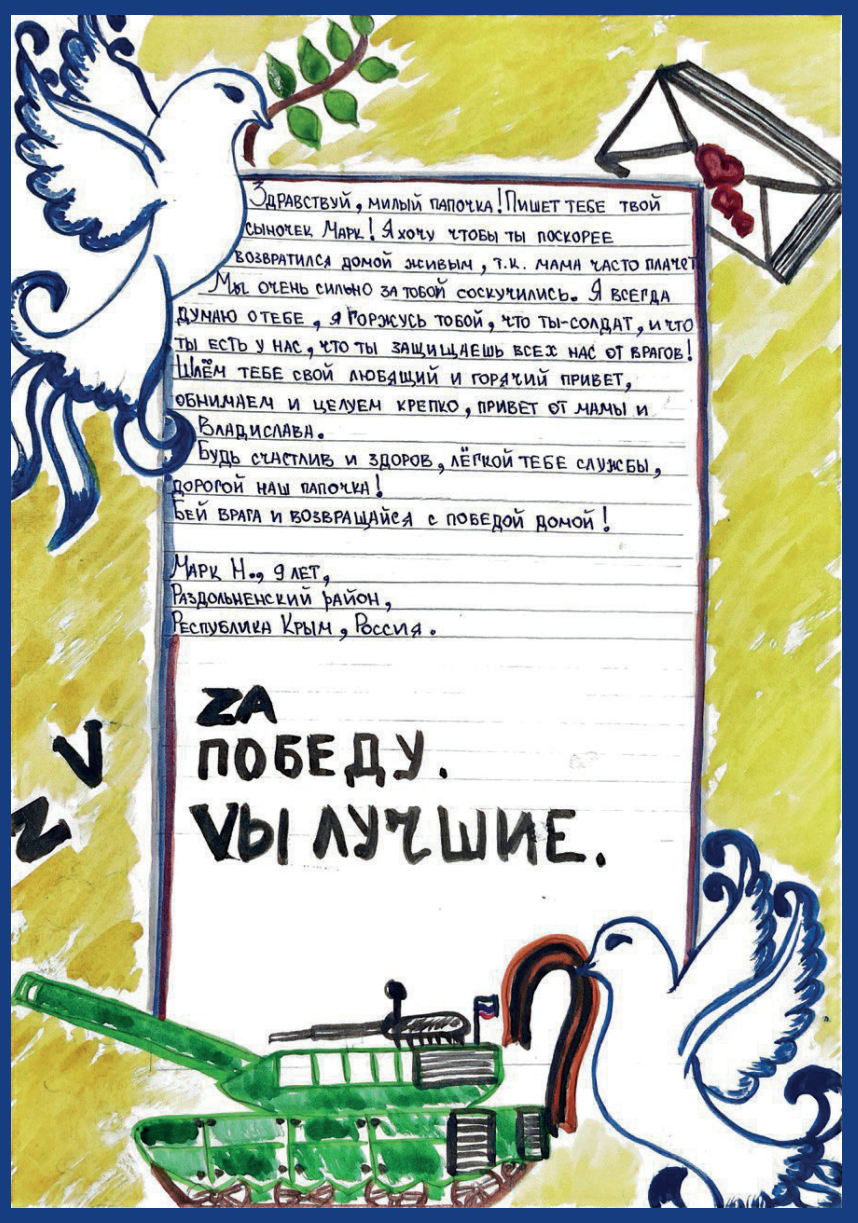 Здравствуй, милый папочка! Пишет тебе твой
сыночек Марк! Я хочу чтобы ты поскорее
возвратился домой живым, т.к. мама часто плачет
Мы очень сильно за тобой соскучились. Я всегда
думаю о тебе, я горжусь тобой, что ты-солдат, и что
ты есть у нас, что ты защищаешь всех нас от врагов!
Шлём тебе свой любящий и горячий привет,
обнимаем и целуем крепко, привет от мамы и
Владислава.
Будь счастлив и здоров, лёгкой тебе службы,
дорогой наш папочка!
Бей врага и возвращайся с победой домой!
Марк Н., 9 лет,
Раздольненский район,
Республика Крым, Россия.
ZА
ПОБЕДУ.
VЫ ЛУЧШИЕ.
V
Z